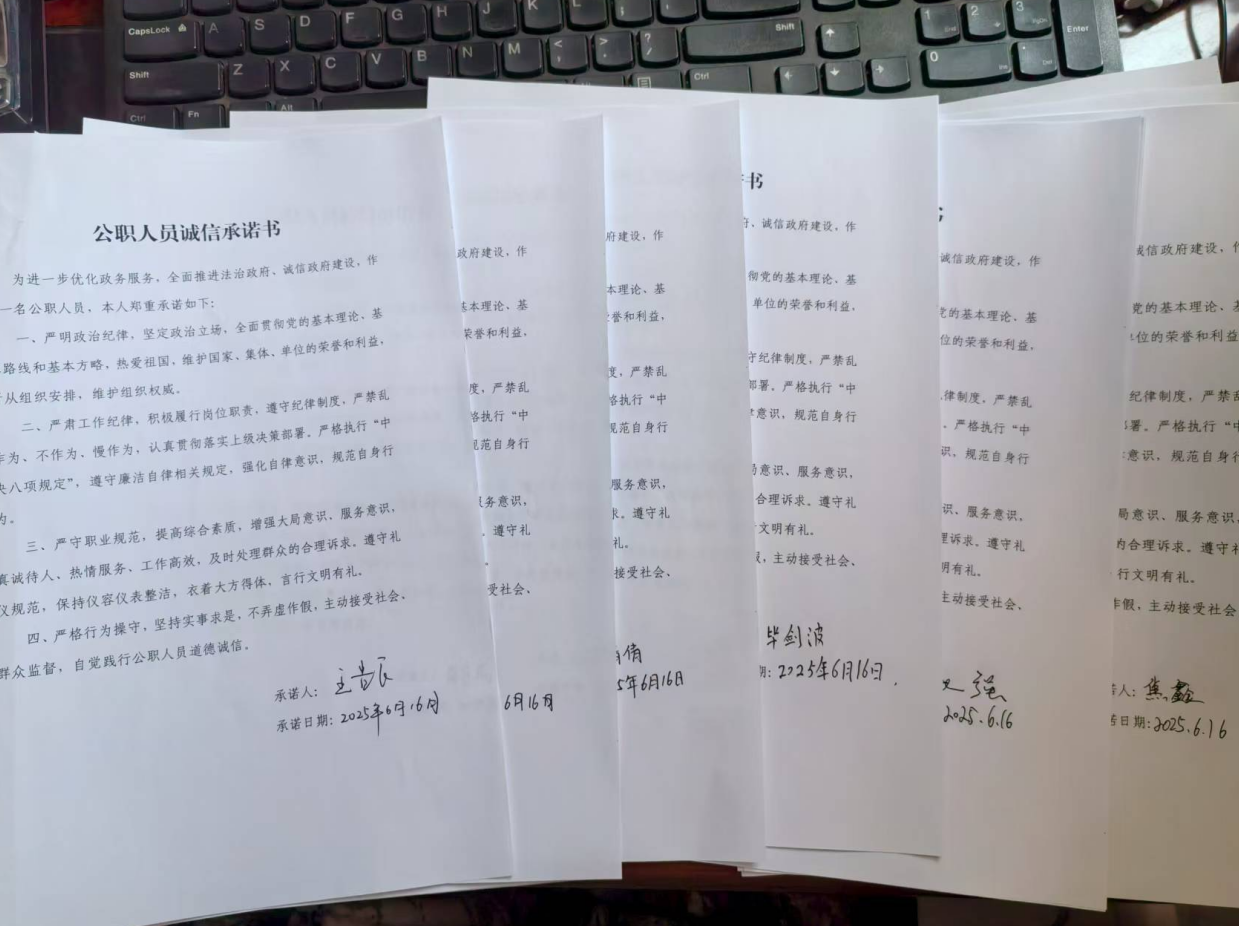 CapsLock A S D F G H J K L ; '
Shift Z X C V B N M < > ? / Shift
Ctrl Fn Alt Ctrl
1 2 3 Enter
0 Ins . Del
公职人员诚信承诺书
为进一步优化政务服务，全面推进法治政府、诚信政府建设，作
一名公职人员，本人郑重承诺如下：
一、严明政治纪律，坚定政治立场，全面贯彻党的基本理论、基
路线和基本方略，热爱祖国，维护国家、集体、单位的荣誉和利益，
从组织安排，维护组织权威。
二、严肃工作纪律，积极履行岗位职责，遵守纪律制度，严禁乱
作为、不作为、慢作为，认真贯彻落实上级决策部署。严格执行“中
央八项规定”，遵守廉洁自律相关规定，强化自律意识，规范自身行
为。
三、严守职业规范，提高综合素质，增强大局意识、服务意识，
真诚待人、热情服务、工作高效，及时处理群众的合理诉求。遵守礼
仪规范，保持仪容仪表整洁，衣着大方得体，言行文明有礼。
四、严格行为操守，坚持实事求是，不弄虚作假，主动接受社会、
群众监督，自觉践行公职人员道德诚信。
承诺人：
承诺日期：2025年6月16日
政府建设，作
基本理论、基
荣誉和利益，
度，严禁乱
格执行“中
规范自身行
服务意识，
遵守礼
受社会、
6月16日
府建设，作
本理论、基
誉和利益，
度，严禁乱
格执行“中
规范自身行
服务意识，
求。遵守礼
礼。
接受社会、
倩
5年6月16日
书
府、诚信政府建设，作
彻党的基本理论、基
单位的荣誉和利益，
守纪律制度，严禁乱
部署。严格执行“中
律意识，规范自身行
局意识、服务意识，
合理诉求。遵守礼
文明有礼。
假，主动接受社会、
毕剑波
期：2025年6月16日．
诚信政府建设，作
党的基本理论、基
位的荣誉和利益，
律制度，严禁乱
。严格执行“中
识，规范自身行
识、服务意识，
理诉求。遵守礼
明有礼。
主动接受社会、
强
2025.6.16
诚信政府建设，作
党的基本理论、基
单位的荣誉和利益
纪律制度，严禁乱
部署。严格执行“中
意识，规范自身行
局意识、服务意识，
的合理诉求。遵守礼
行文明有礼。
作假，主动接受社会
诺人：焦鑫
诺日期：2025.6.16